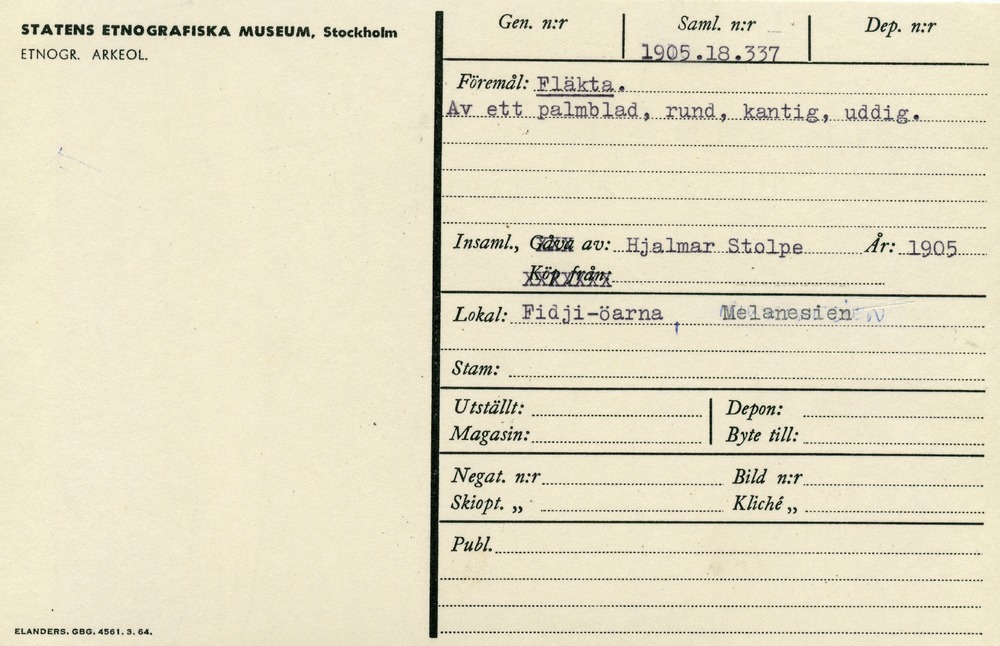 STATENS ETNOGRAFISKA MUSEUM, Stockholm
ETNOGR. ARKEOL.
Gen. n:r Saml. n:r Dep. n:r
1905.18.337
Föremål: Fläkta.
Av ett palmblad, rund, kantig, uddig.
Insaml., Gåva av: Hjalmar Stolpe År: 1905
Köp från:
Lokal: Fidji-öarna Melanesien
Stam:
Utställt: Depon:
Magasin: Byte till:
Negat. n:r Bild n:r
Skiopt. „ Kliché „
Publ.
ELANDERS. GBG. 4561. 3. 64.